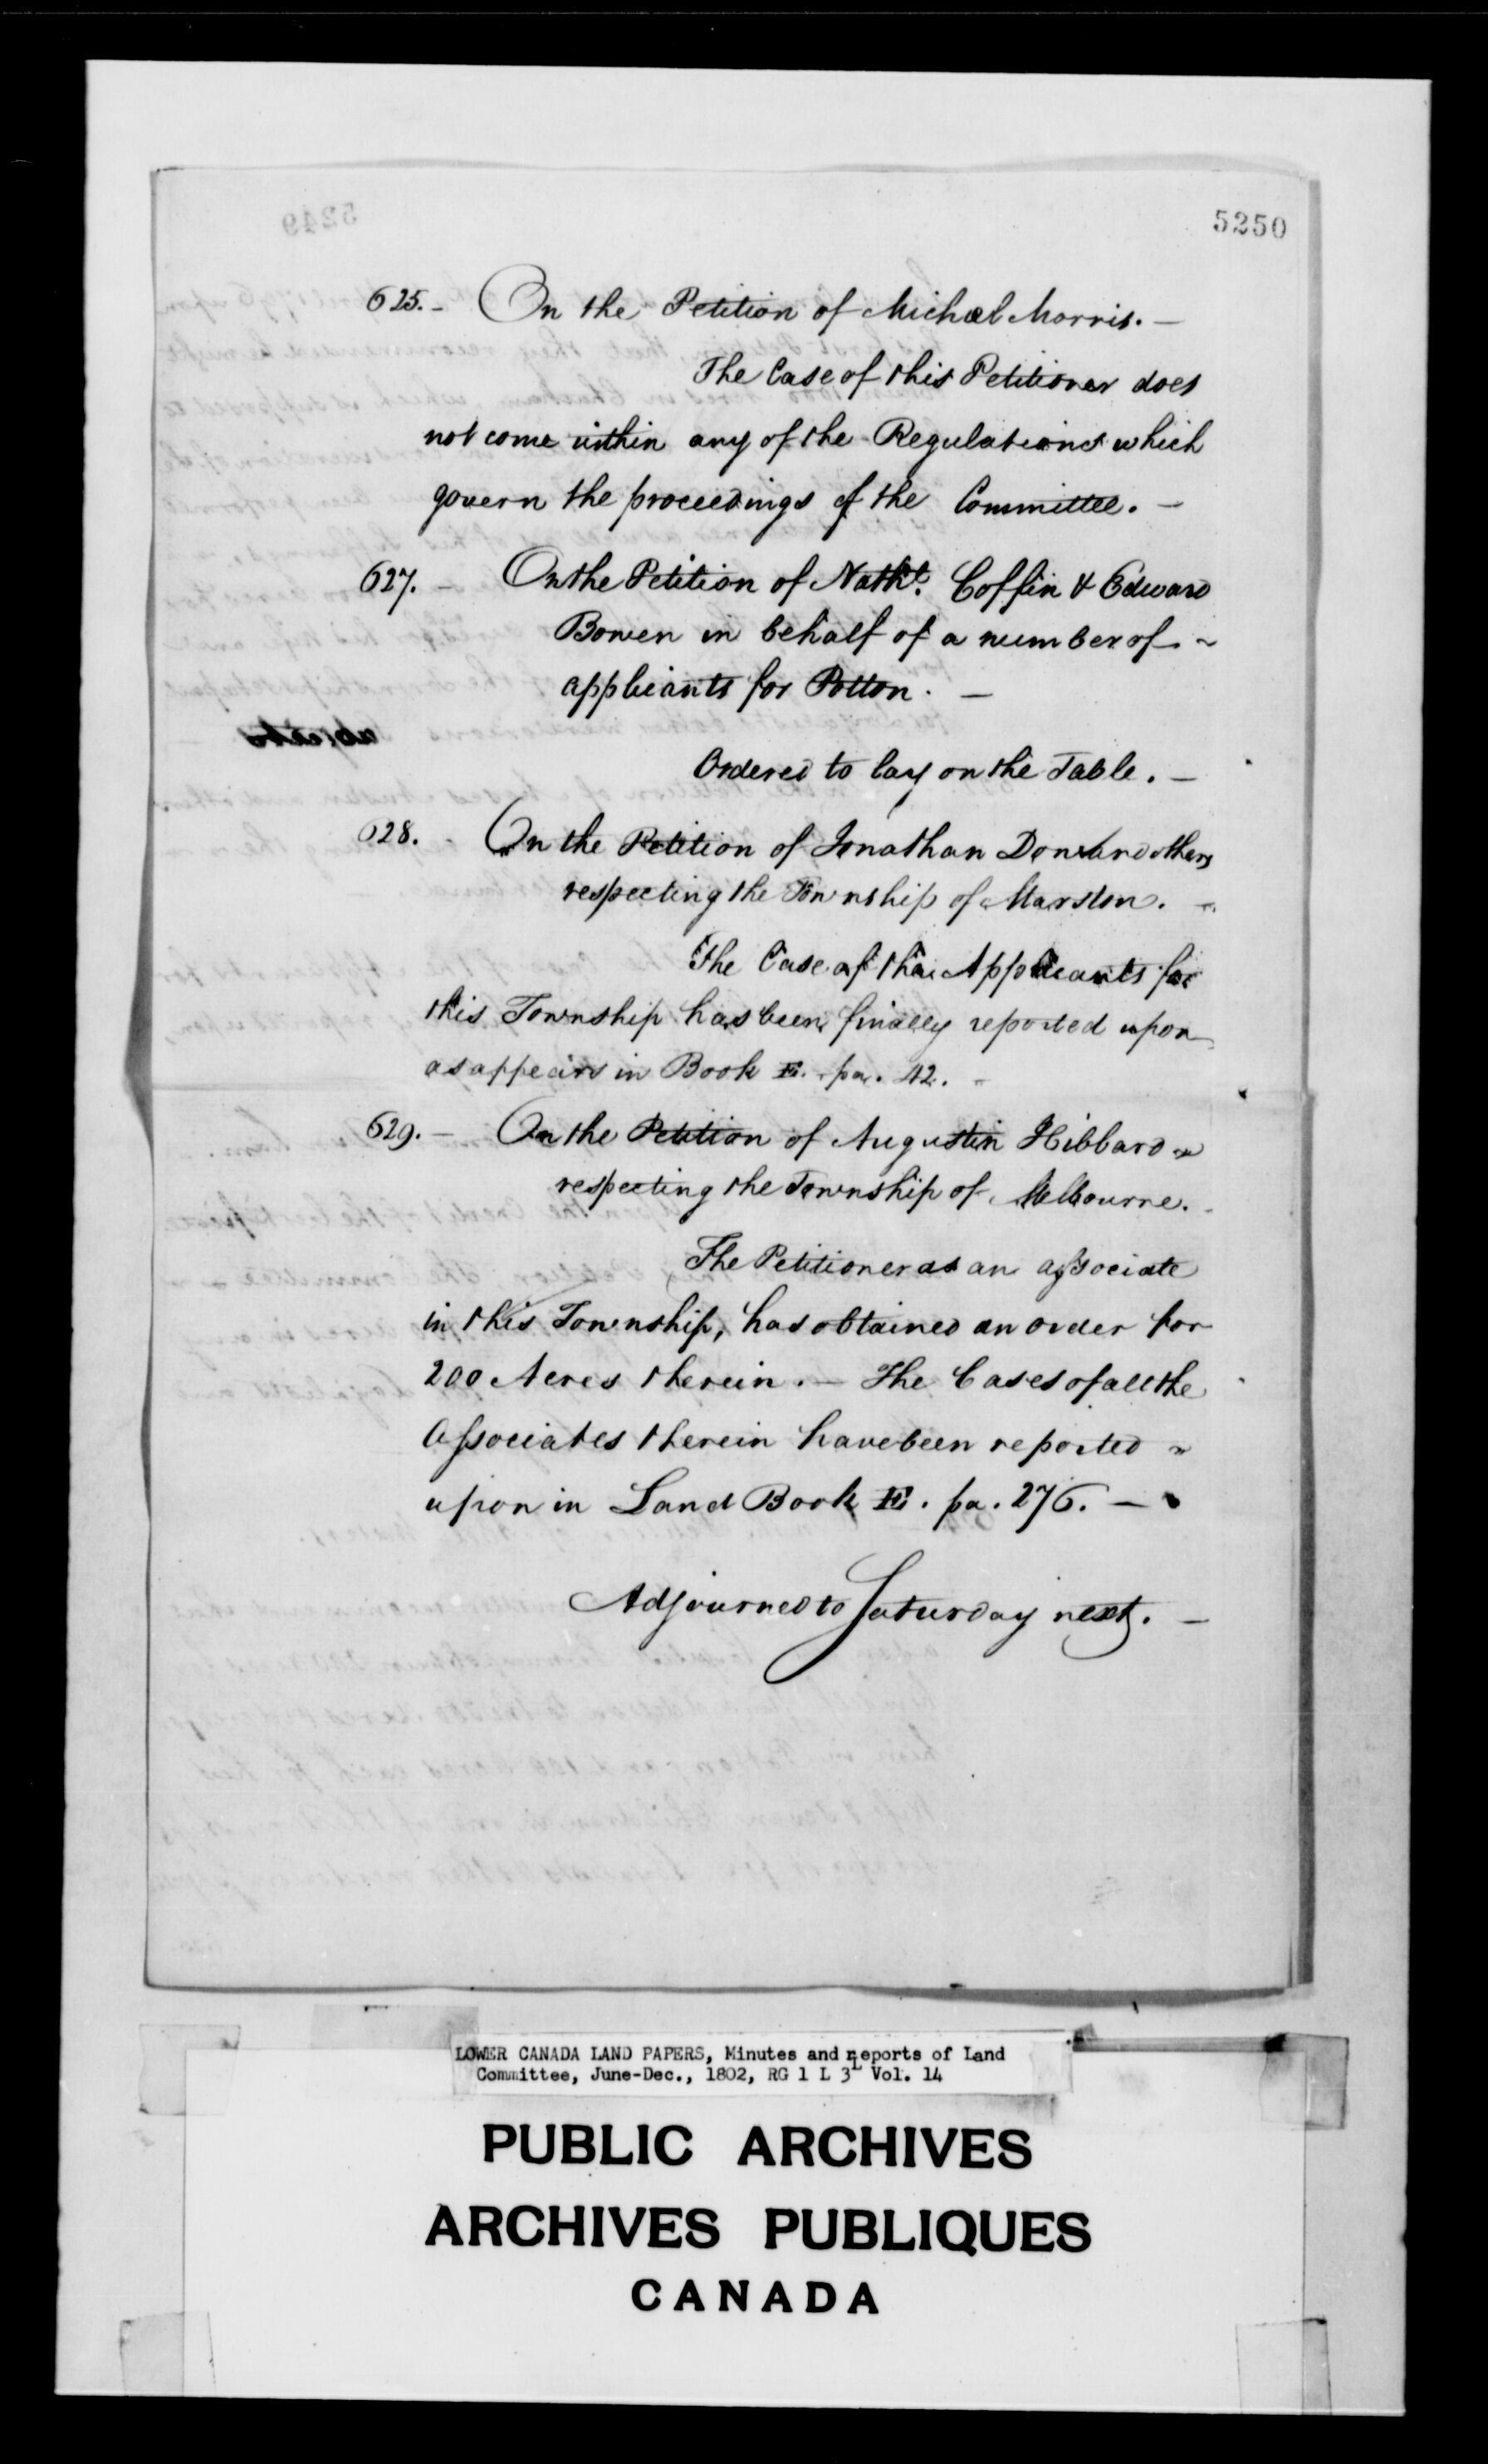 5250
625. - On the Petition of Michael Morris. -
The Case of this Petitioner does
not come within any of the Regulations which
govern the proceedings of the Committee. -
627. - On the Petition of Nathl. Coffin & Edward
Bowen in behalf of a number of -
applicants for Potton. -
Ordered to lay on the Table. -
628. On the Petition of Jonathan and others
respecting the Township of Marston. -
The Case of the Applicants for
this Township has been finally reported upon
as appears in Book E. pa. 42. -
629. - On the Petition of Augustin Hibbard -
respecting the Township of Melbourne.
The Petitioner as an associate
in this Township, has obtained an order for
200 Acres therein. - The Cases of all the
Associates therein have been reported -
upon in Land Book E. pa. 276. -
Adjourned to Saturday next. -
LOWER CANADA LAND PAPERS, Minutes and reports of Land
Committee, June-Dec., 1802, RG 1 L 3L Vol. 14
PUBLIC ARCHIVES
ARCHIVES PUBLIQUES
CANADA